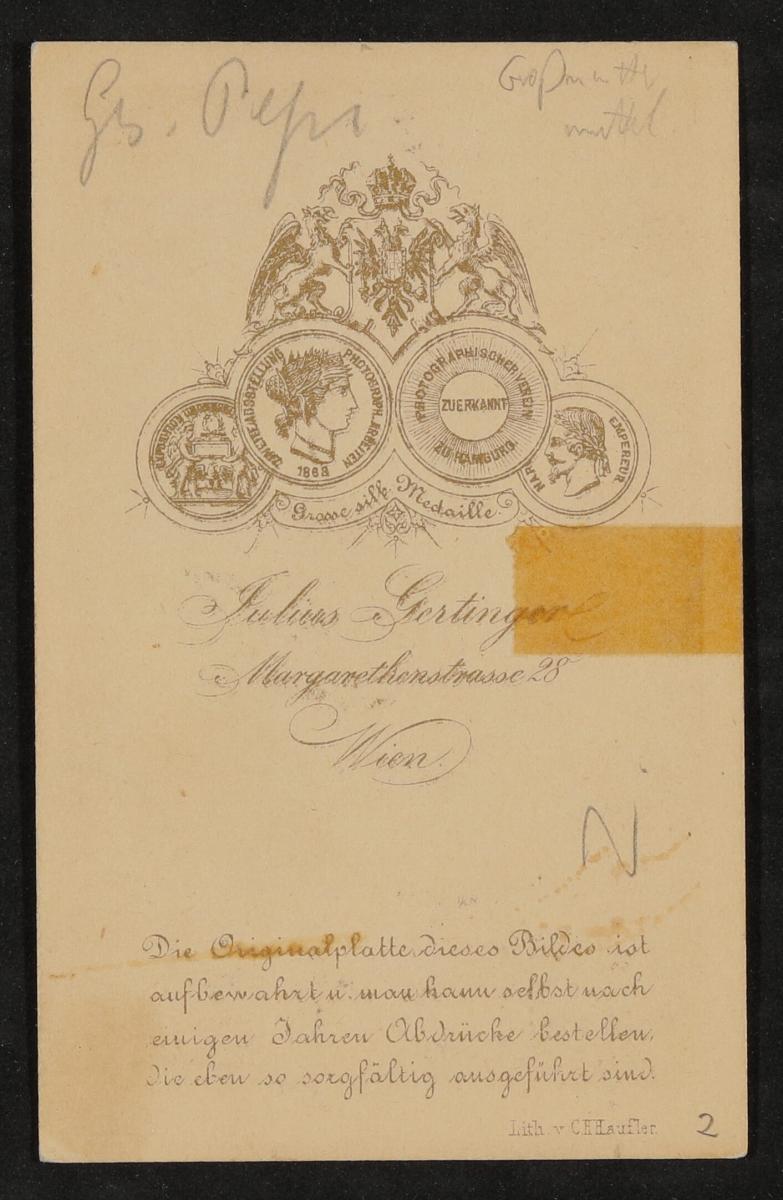 Gs. Pepi
Großmutter
EXPOSITION UNIVERSELLE
ZWEITE AUSSTELLUNG PHOTOGRAPH. ARBEITEN
1868
PHOTOGRAPHISCHER VEREIN
ZUERKANNT
ZU HAMBURG
NAP EMPEREUR
Grosse silb. Medaille.
Julius Gertinger
Margarethenstrasse 28
Wien.
N
Die Originalplatte dieses Bildes ist
aufbewahrt u. man kann selbst nach
einigen Jahren Abdrücke bestellen,
die eben so sorgfältig ausgeführt sind.
Lith. v. C. H. Haufler.
2